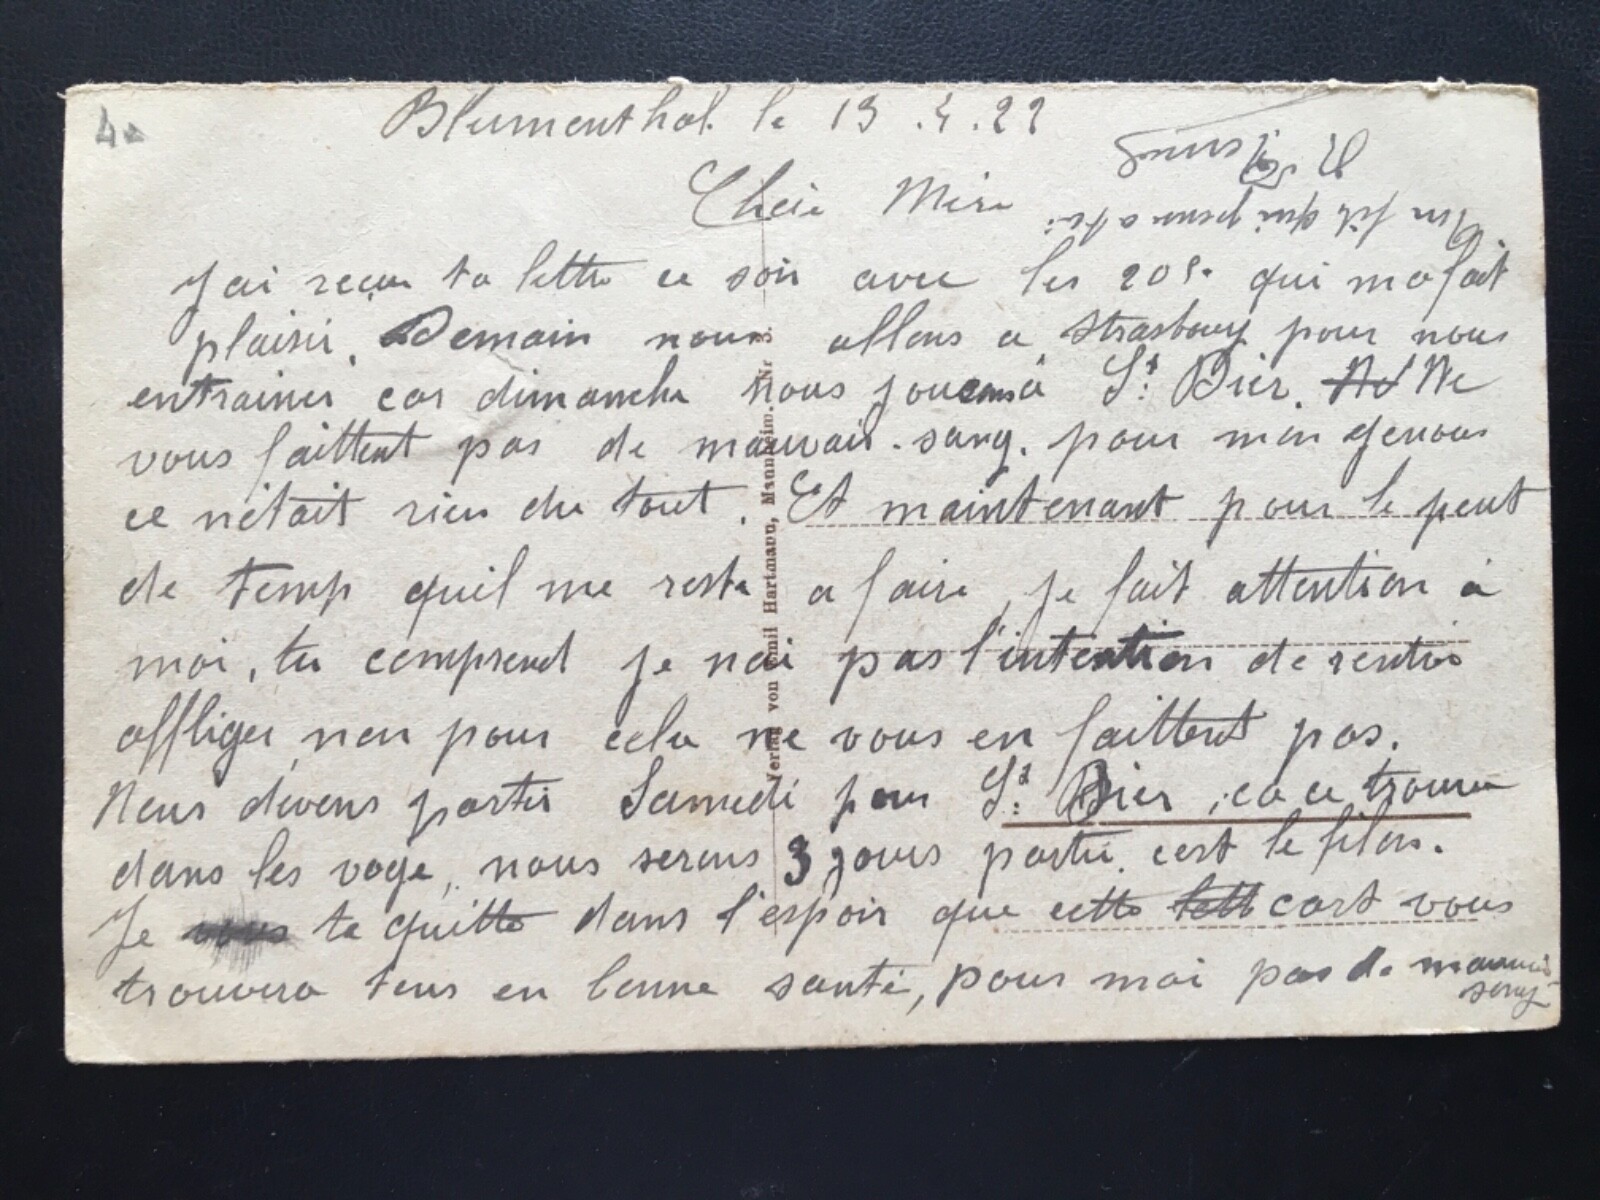 4
Blumenthal. le 13.4.22
Chère Mère
J'ai reçu ta lettre ce soir avec les 20f. qui ma fait
plaisir. Demain nous allons a Strasbourg pour nous
entrainer car dimanche nous jouons à St: Dier. Ne
vous faittent pas de mauvais-sang. pour mon genous
ce n'était rien du tout. Et maintenant pour le peut
de temp quil me reste a faire, je fait attention à
moi, tu comprend je nai pas l'intention de rentrer
affliger, non pour cela ne vous en faittent pas.
Nous devons partir Samedi pour St: Dier, ca ce trouve
dans les voge, nous serons 3 jours partie. cest le filon.
Je te quitte dans l'espoir que cette cart vous
trouvera tous en bonne santé, pour moi pas de mauvais
sang
Un fils qui pense a toi.
Verlag von Emil Hartmann, Mannheim. Nr 3.